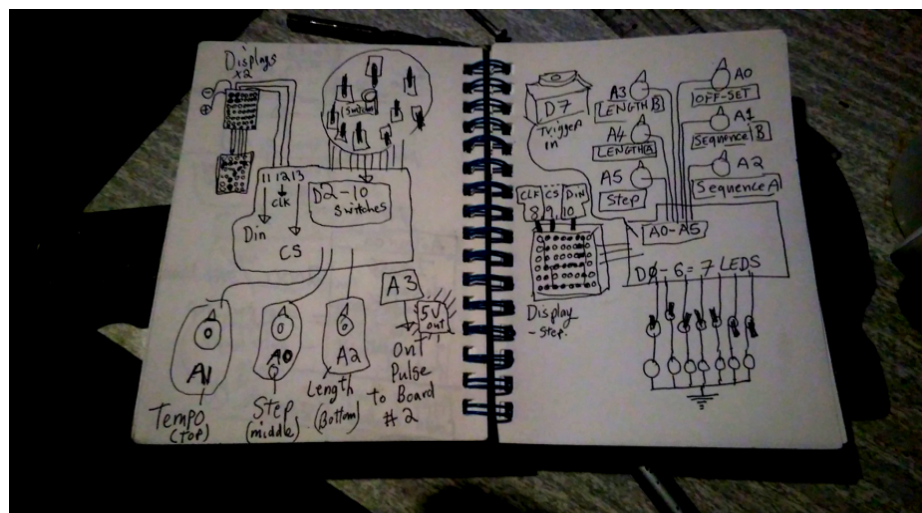 Displays
x2
Switches
11 12 13
clk
Din
CS
D2-10
Switches
A1
Tempo
(top)
A0
Step
(middle)
A2
Length
(Bottom)
A3
5V
out
Out
Pulse
to Board
#2
D7
Trigger
in
A3
LENGTH B
A4
LENGTH A
A5
Step
A0
OFF-SET
A1
Sequence B
A2
Sequence A
CLK CS Din
8 9 10
A0-A5
DØ-6=7 LEDS
Display
-Step.